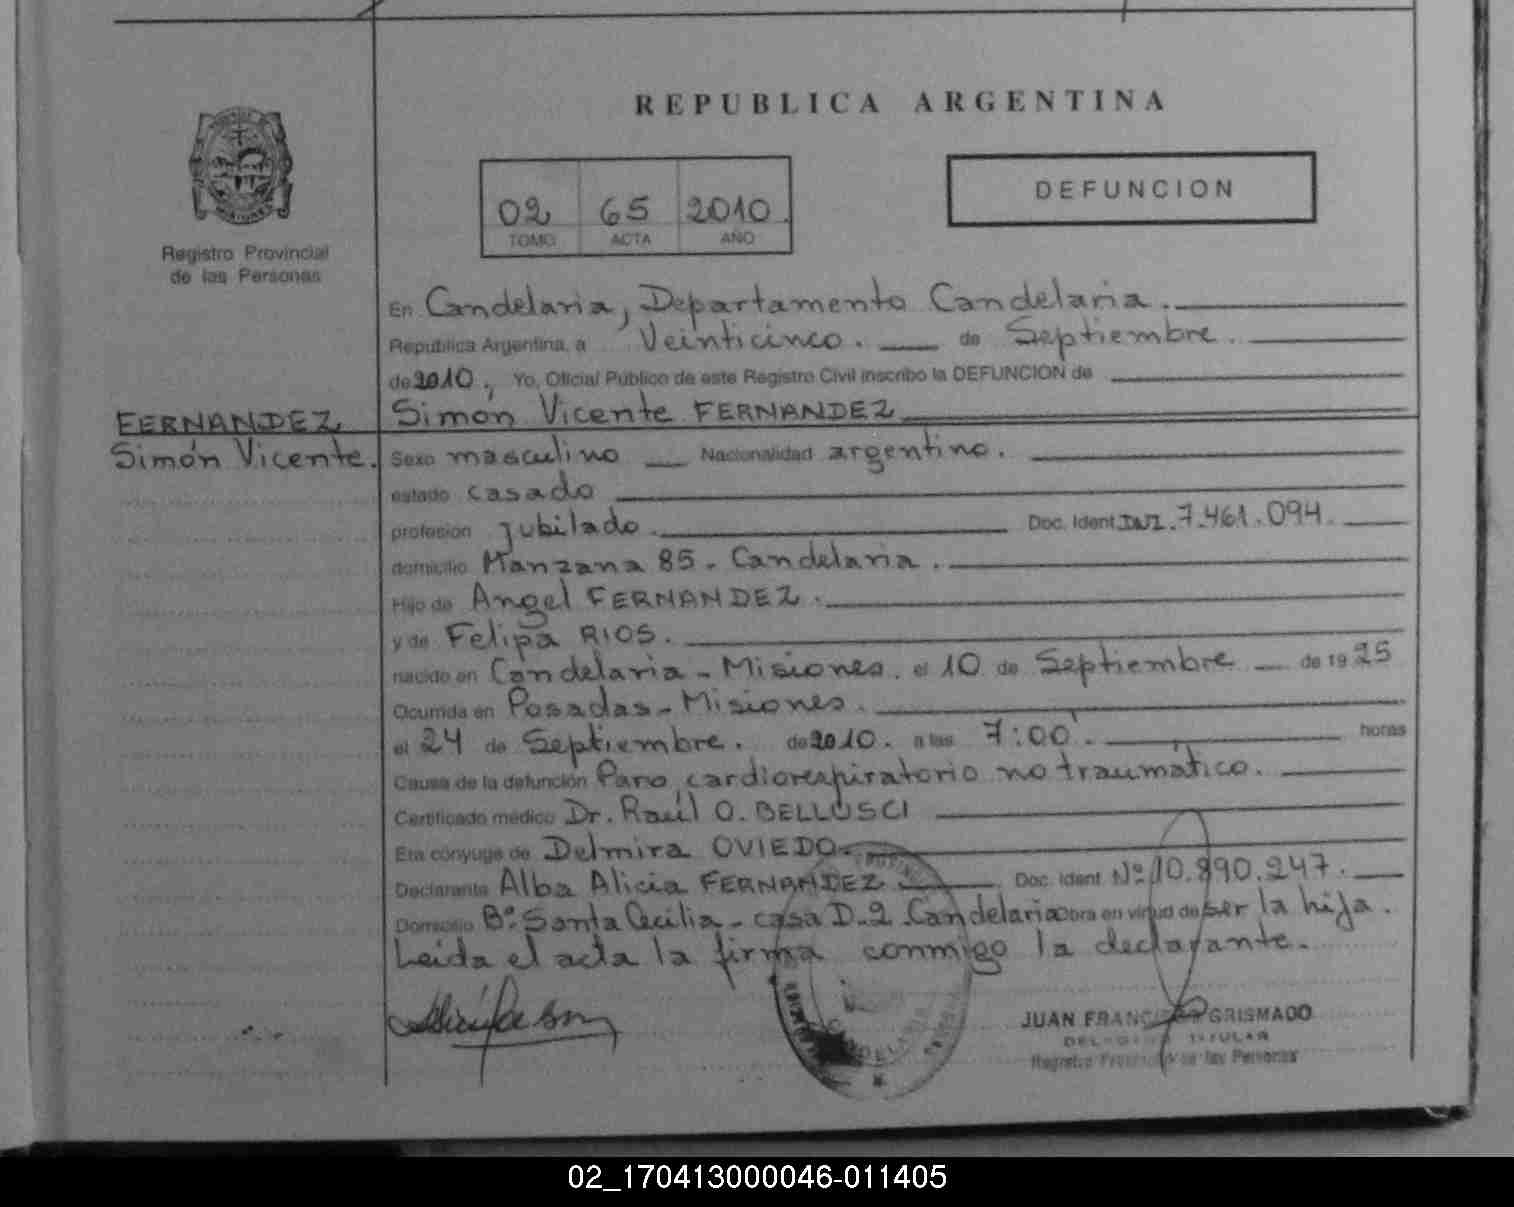 REPUBLICA ARGENTINA
02 65 2010
TOMO ACTA AÑO
DEFUNCION
Registro Provincial
de las Personas
En Candelaria, Departamento Candelaria.
Republica Argentina, a Veinticinco. de Septiembre.
de 2010, Yo, Oficial Público de este Registro Civil inscribo la DEFUNCION de
FERNANDEZ
Simón Vicente.
Simón Vicente FERNANDEZ
Sexo masculino Nacionalidad argentino.
estado casado
profesión jubilado. Doc. Ident. DNI. 7.461.094.
domicilio Manzana 85. Candelaria.
Hijo de Angel FERNANDEZ.
y de Felipa RIOS.
nacido en Candelaria - Misiones. el 10 de Septiembre de 1925
Ocurrida en Posadas - Misiones.
el 24 de Septiembre. de 2010. a las 7:00'. horas
Causa de la defunción Paro cardiorespiratorio no traumático.
Certificado médico Dr. Raúl O. BELLUSCI
Era cónyuge de Delmira OVIEDO.
Declarante Alba Alicia FERNANDEZ Doc. Ident. Nº 10.890.247.
Domicilio Bº. Santa Cecilia - casa D-2. Candelaria Obra en virtud de ser la hija.
Leída el acta la firma conmigo la declarante.
JUAN FRANCISCO GRISMADO
DELEGADO TITULAR
Registro Provincial de las Personas
02_170413000046-011405